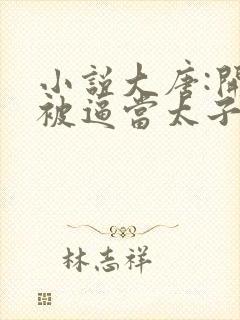 小說大唐:開
被逼當太子
林志祥